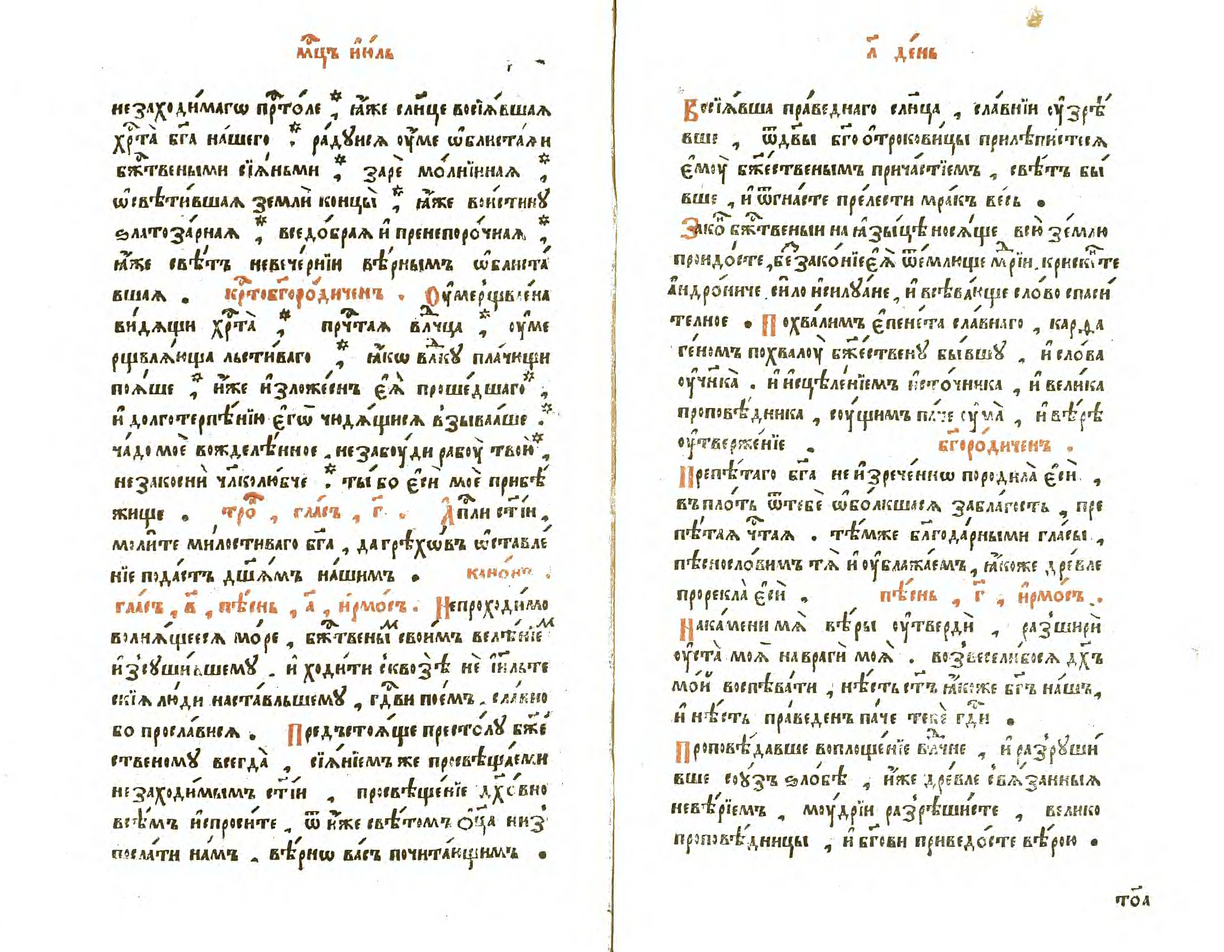 мⷭ҇цъ і҆ю́ль
незаходи́магѡ прⷭ҇то́ле * ꙗ҆́же сл҃нце восїѧ́вшаѧ
хрⷭ҇та̀ бг҃а на́шего * ра́дꙋисѧ ᲂу҆́ме ѡ҆блиста́ѧи
бжⷭ҇твеными сїѧ́ньми * заре̑ мо́лнїинаѧ *
ѡ҆свѣти́вшаѧ землѝ концы̀ * ꙗ҆́же вои́стинꙋ
ѕлатоза́рнаѧ * вседо́браѧ и҆ пренепоро́чнаѧ *
ꙗ҆́же свѣ́тъ невече́рнїи вѣ́рнымъ ѡ҆блиста́
вшаѧ . крⷭ҇тобг҃оро́диченъ . Оу҆мерщвле́на
ви́дѧщи хрⷭ҇та̀ * прⷱ҇таѧ влⷣчца * ᲂу҆ме
рщвлѧ́юща льсти́ваго * ꙗ҆́кѡ влⷣкꙋ пла́чищи
поѧ́ше * и҆́же и҆зложе́снъ є҆ѧ̀ проше́дшаго *
и҆ долготерпѣ́нїю є҆гѡ̀ чюдѧ́щисѧ взыва́аше . *
ча́до моѐ вожделѣ́нное , незабоу́ди рабоу̀ твою̀ *
незакоснѝ чл҃колю́бче * ты́ бо є҆сѝ моѐ прибѣ́
жище . тро , гла́съ , г҃ . А҆пⷭ҇ли ст҃і́и ,
моли́те ми́лостиваго бг҃а , да грѣхѡ́въ ѡ҆ставле́
нїе пода́стъ дш҃ѧ́мъ на́шимъ . кано́нъ .
гла́съ , в҃ , пѣ́снь , а҃ , і҆рмо́съ . Непроходи́мо
волнѧ́щеесѧ мо́ре , бжⷭ҇твены́м свои́мъ велѣ́нїем
и҆зсꙋши́вшемꙋ . и҆ ходи́ти сквозѣ̀ нѐ і҆и҃льте
скі́ѧ лю́ди наста́вльшемꙋ , гдⷭ҇ви пое́мъ , сла́вно
бо просла́висѧ . Предъстоѧ́ще престо́лꙋ бж҃е
ственомꙋ всегда̀ , сїѧ́нїемъ же просвѣща́еми
незаходи́мымъ ст҃і́и , просвѣще́нїе дх҃о́вно
всѣ́мъ и҆спроси́те , ѿ и҆́же свѣ́томъ ѻ҆ц҃а низ
посла́ти на́мъ , вѣ́рнѡ ва́съ почита́ющимъ .
а҃ де́нь
Восїѧ́вша пра́веднаго сл҃нца , сла́внїи ᲂу҆зрѣ́
вше , ѿдв҃ы бг҃оѻ҆трокови́цы прилѣпи́стесѧ
є҆моу̀ бжⷭ҇ественымъ прича́стїемъ , свѣ́тъ бы́
вше , и҆ ѿгна́сте пре́лести мра́къ ве́сь .
Зако́ бжⷭ҇твеныи на ꙗ҆зы́цѣ носѧ́ще всю̀ зе́млю
проидо́сте , бе́законїе є҆ѧ̀ ѿе́млюще мр҃їи . криски́те
А҆ндро́ниче . си́ло и҆силꙋа́не , и҆ всѣва́юще сло́во спаси́
телное . Похвали́мъ є҆пене́та сла́внаго , карфа
ге́номъ похвалоу̀ бжⷭ҇ественꙋ бы́вшꙋ , и҆ сло́ва
ᲂу҆чн҃ка̀ . и҆ и҆сцѣле́нїемъ и҆сто́чника , и҆ вели́ка
проповѣ́дника , соу́щимъ па́че ᲂу҆ма̀ , и҆ вѣ́рѣ
ᲂу҆тверже́нїе . бг҃оро́диченъ .
Препѣ́таго бг҃а неи҆зрече́ннѡ породила̀ є҆сѝ ,
въ пло́ть ѿтебѐ ѡ҆бо́лкшасѧ за бл҃гость , пре
пѣ́таѧ чⷭ҇таѧ . тѣ́мже бл҃года́рными гла́сы ,
пѣснослови́мъ тѧ̀ и҆ ᲂу҆блажа́емъ , ꙗ҆́коже дре́вле
прорекла̀ є҆сѝ , пѣ́снь , г҃ , і҆рмо́съ .
На ка́мени мѧ̀ вѣ́ры ᲂу҆твердѝ , разширѝ
ᲂу҆ста̀ моѧ̀ на врагѝ моѧ̀ . возвесели́босѧ дх҃ъ
мо́й воспѣва́ти , нѣ́сть ст҃ъ ꙗ҆́коже бг҃ъ на́шъ ,
и҆ нѣ́сть пра́веденъ па́че тебѐ гдⷭ҇и .
Проповѣ́давше воплоще́нїе влⷣчне , и҆ разрꙋши́
вше соу́зъ ѕло́бѣ , и҆́же дре́вле свѧ́занныѧ
невѣ́рїемъ , моу́дрїи разрѣши́сте , вели́ко
проповѣ́дницы , и҆ бг҃ови приведо́сте вѣ́рою .
то҃а